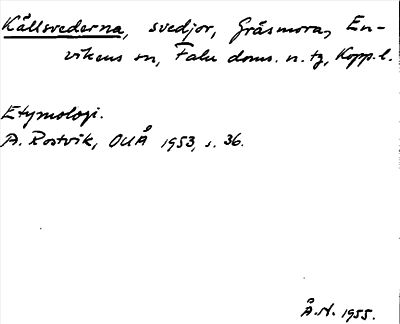 Källsvederna, svedjor, Gräsmora, En-
vikens sn, Falu doms. n. tg, Kopp. l.
Etymologi.
A. Rostvik, OUÅ 1953, s. 36.
Å. H. 1955.